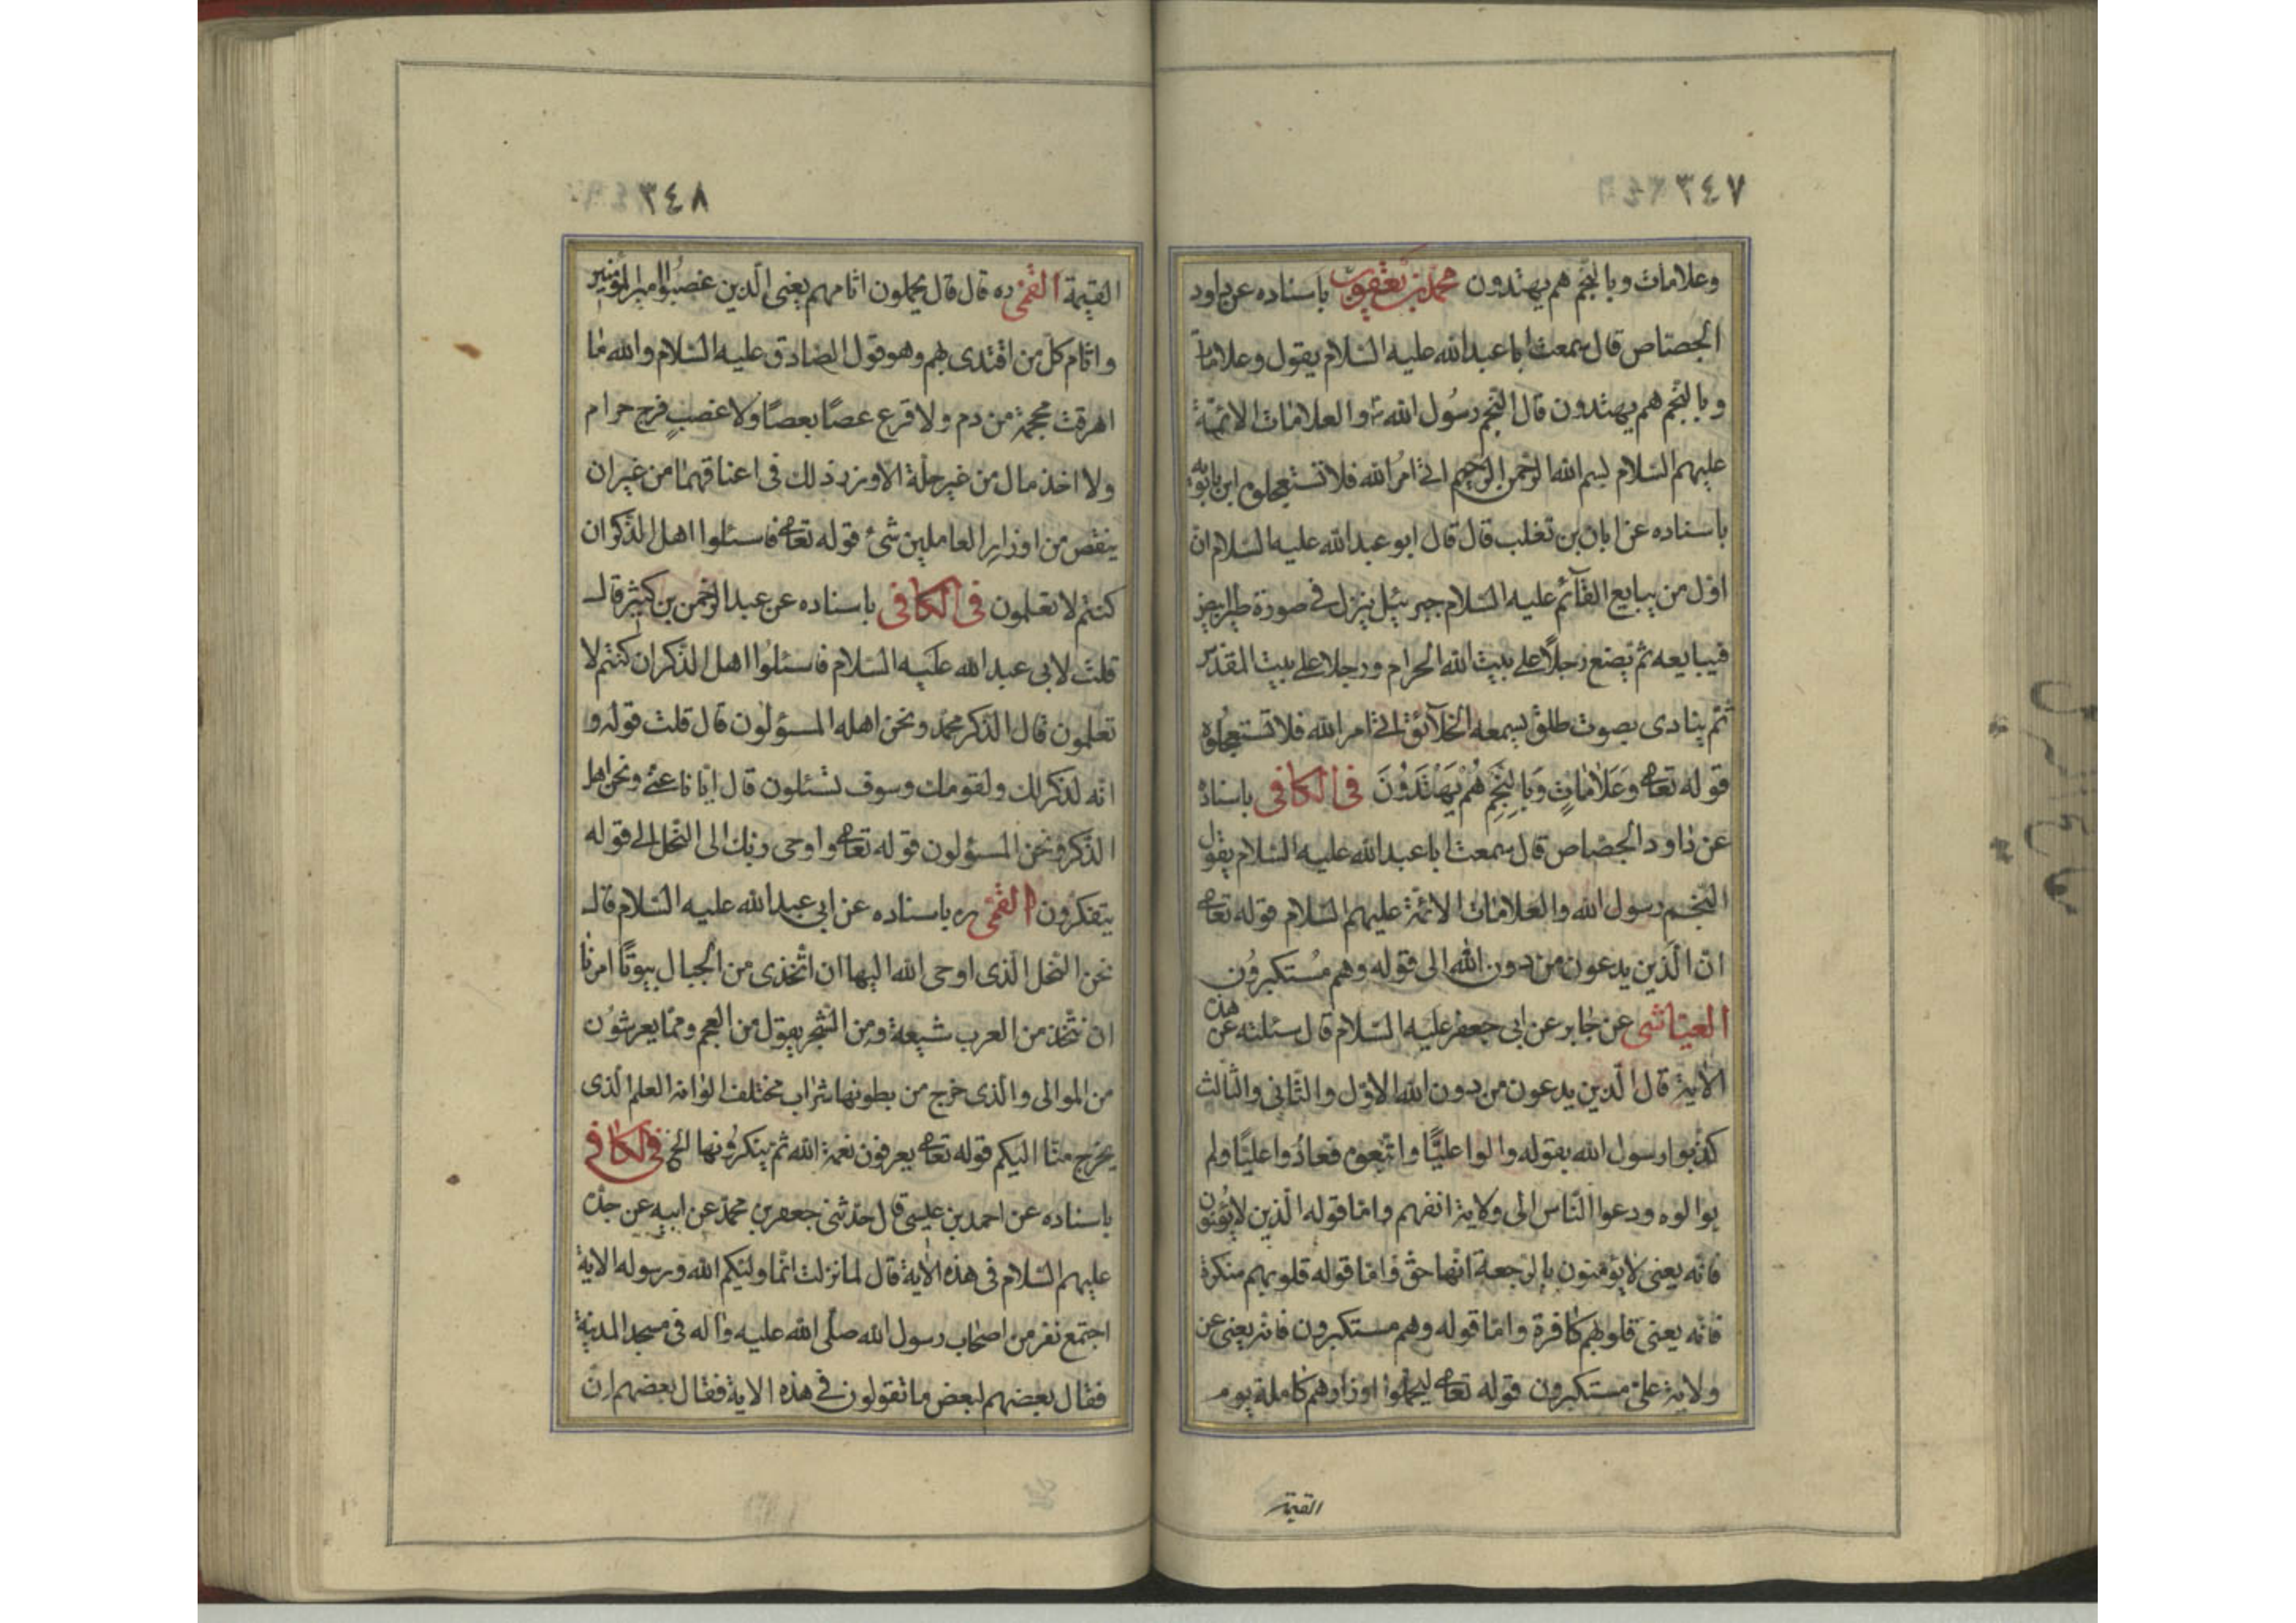 ٣٤٧
وعلامات وبالنجم هم يهتدون محمد بن يعقوب باسناده عن داود
الجصاص قال سمعت ابا عبدالله عليه السلام يقول وعلامات
وبالنجم هم يهتدون قال النجم رسول الله والعلامات الائمة
عليهم السلام بسم الله الرحمن الرحيم اتى امر الله فلا تستعجلوه ابن بابويه
باسناده عن ابان بن تغلب قال قال ابو عبدالله عليه السلام ان
اول من يبايع القآئم عليه السلام جبرئيل ينزل فى صورة طير ابيض
فيبايعه ثم يضع رجلا على بيت الله الحرام ورجلا على بيت المقدس
ثم ينادى بصوت طلق يسمعه الخلآئق اتى امر الله فلا تستعجلوه
قوله تعالى وَعَلَامَاتٍ وَبِالنَّجْمِ هُمْ يَهْتَدُونَ فى الكافى باسناده
عن داود الجصاص قال سمعت ابا عبدالله عليه السلام يقول
النجم رسول الله والعلامات الائمة عليهم السلام قوله تعالى
ان الذين يدعون من دون الله الى قوله وهم مستكبرون
العياشى عن جابر عن ابى جعفر عليه السلام قال سئلته عن هذه
الآية قال الذين يدعون من دون الله الاول والثانى والثالث
كذبوا رسول الله بقوله والوا عليًّا واتبعوه فعادوا عليًّا ولم
يوالوه ودعوا الناس الى ولاية انفسهم واما قوله الذين لا يؤمنون
فانه يعنى لا يؤمنون بالرجعة انها حق واما قوله قلوبهم منكرة
فانه يعنى قلوبهم كافرة واما قوله وهم مستكبرون فانه يعنى عن
ولاية على مستكبرون قوله تعالى ليحملوا اوزارهم كاملة يوم
القيمة
٣٤٨
القيمة القمى ره قال قال يحملون اثامهم يعنى الذين غصبوا امير المؤمنين
واثام كل من اقتدى بهم وهو قول الصادق عليه السلام والله ما
اهرقت محجمة من دم ولا قرع عصًا بعصًا ولا غصب فرج حرام
ولا اخذ مال من غير حلة الا وزر ذلك فى اعناقهما من غير ان
ينقص من اوزار العاملين شئ قوله تعالى فاسئلوا اهل الذكر ان
كنتم لا تعلمون فى الكافى باسناده عن عبدالرحمن بن كثير قال
قلت لابى عبدالله عليه السلام فاسئلوا اهل الذكر ان كنتم لا
تعلمون قال الذكر محمد ونحن اهله المسؤلون قال قلت قوله و
انه لذكر لك ولقومك وسوف تسئلون قال ايانا عنى ونحن اهل
الذكر ونحن المسؤلون قوله تعالى واوحى ربك الى النحل الى قوله
يتفكرون القمى ره باسناده عن ابى عبدالله عليه السلام قال
نحن النحل الذى اوحى الله اليها ان اتخذى من الجبال بيوتًا امرنا
ان نتخذ من العرب شيعة ومن الشجر يقول من العجم ومما يعرشون
من الموالى والذى خرج من بطونها شراب مختلف الوانه العلم الذى
يخرج منا اليكم قوله تعالى يعرفون نعمة الله ثم ينكرونها الخ فى الكافى
باسناده عن احمد بن عيسى قال حدثنى جعفر بن محمد عن ابيه عن جده
عليهم السلام فى هذه الآية قال لما نزلت انما وليكم الله ورسوله الاية
اجتمع نفر من اصحاب رسول الله صلى الله عليه وآله فى مسجد المدينة
فقال بعضهم لبعض ما تقولون فى هذه الاية فقال بعضهم ان